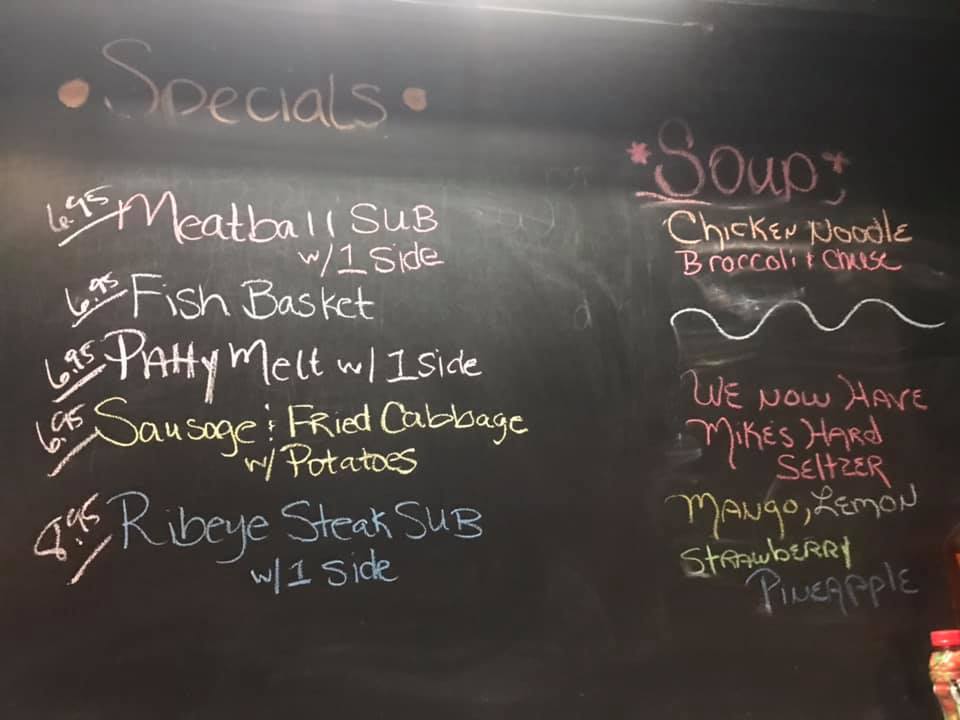 • Specials •
6.95 Meatball SUB
w/ 1 Side
6.95 Fish Basket
6.95 Patty Melt w/ 1 Side
6.95 Sausage & Fried Cabbage
w/ Potatoes
8.95 Ribeye Steak SUB
w/ 1 Side
*Soup*
Chicken Noodle
Broccoli & Cheese
We now Have
Mikes Hard
Seltzer
Mango, Lemon
Strawberry
Pineapple